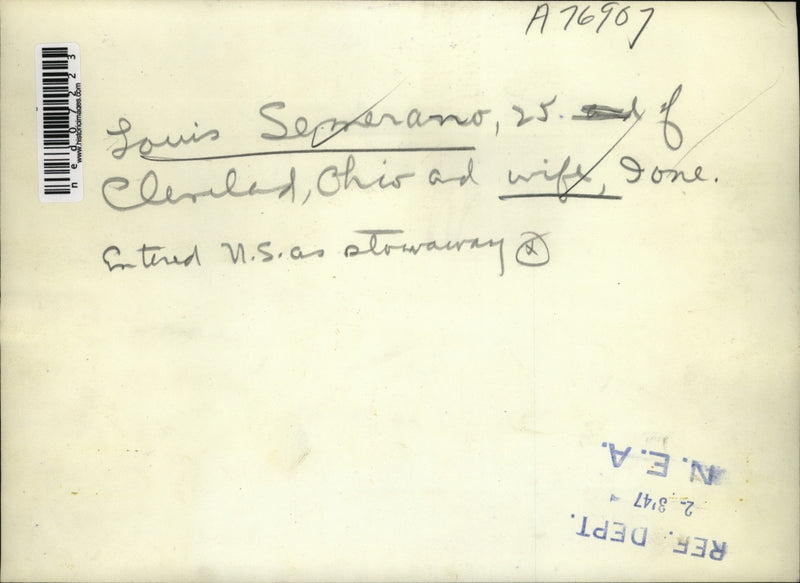 A76907
Louis Semerano, 25. of
Cleveland, Ohio ad wife, Ione.
Entered U.S. as stowaway X
ned07223
www.historicimages.com
REF. DEPT.
2-3'47
N.E.A.